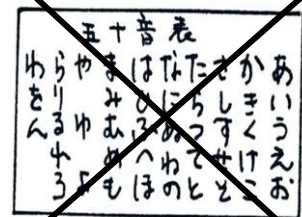 五十音表
あいうえお
かきくけこ
さしすせそ
たちつてと
なにぬねの
はひふへほ
まみむめも
や ゆ よ
らりるれろ
わをん